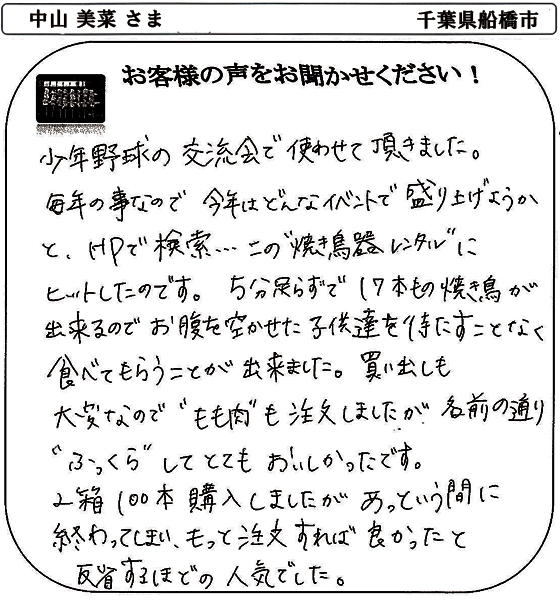 中山 美菜 さま 千葉県船橋市
お客様の声をお聞かせください！
少年野球の 交流会で 使わせて 頂きました。
毎年の事なので 今年はどんなイベントで 盛り上げようか
と、HPで 検索… この"焼き鳥器レンタル"に
ヒットしたのです。 5分足らずで 17本もの焼き鳥が
出来るので お腹を空かせた 子供達を待たすことなく
食べてもらうことが 出来ました。 買い出しも
大変なので "もも肉"も 注文しましたが 名前の通り
"ふっくら" して とても おいしかったです。
2箱 100本 購入しましたが あっという間に
終わってしまい、もっと注文すれば 良かったと
反省するほどの 人気でした。